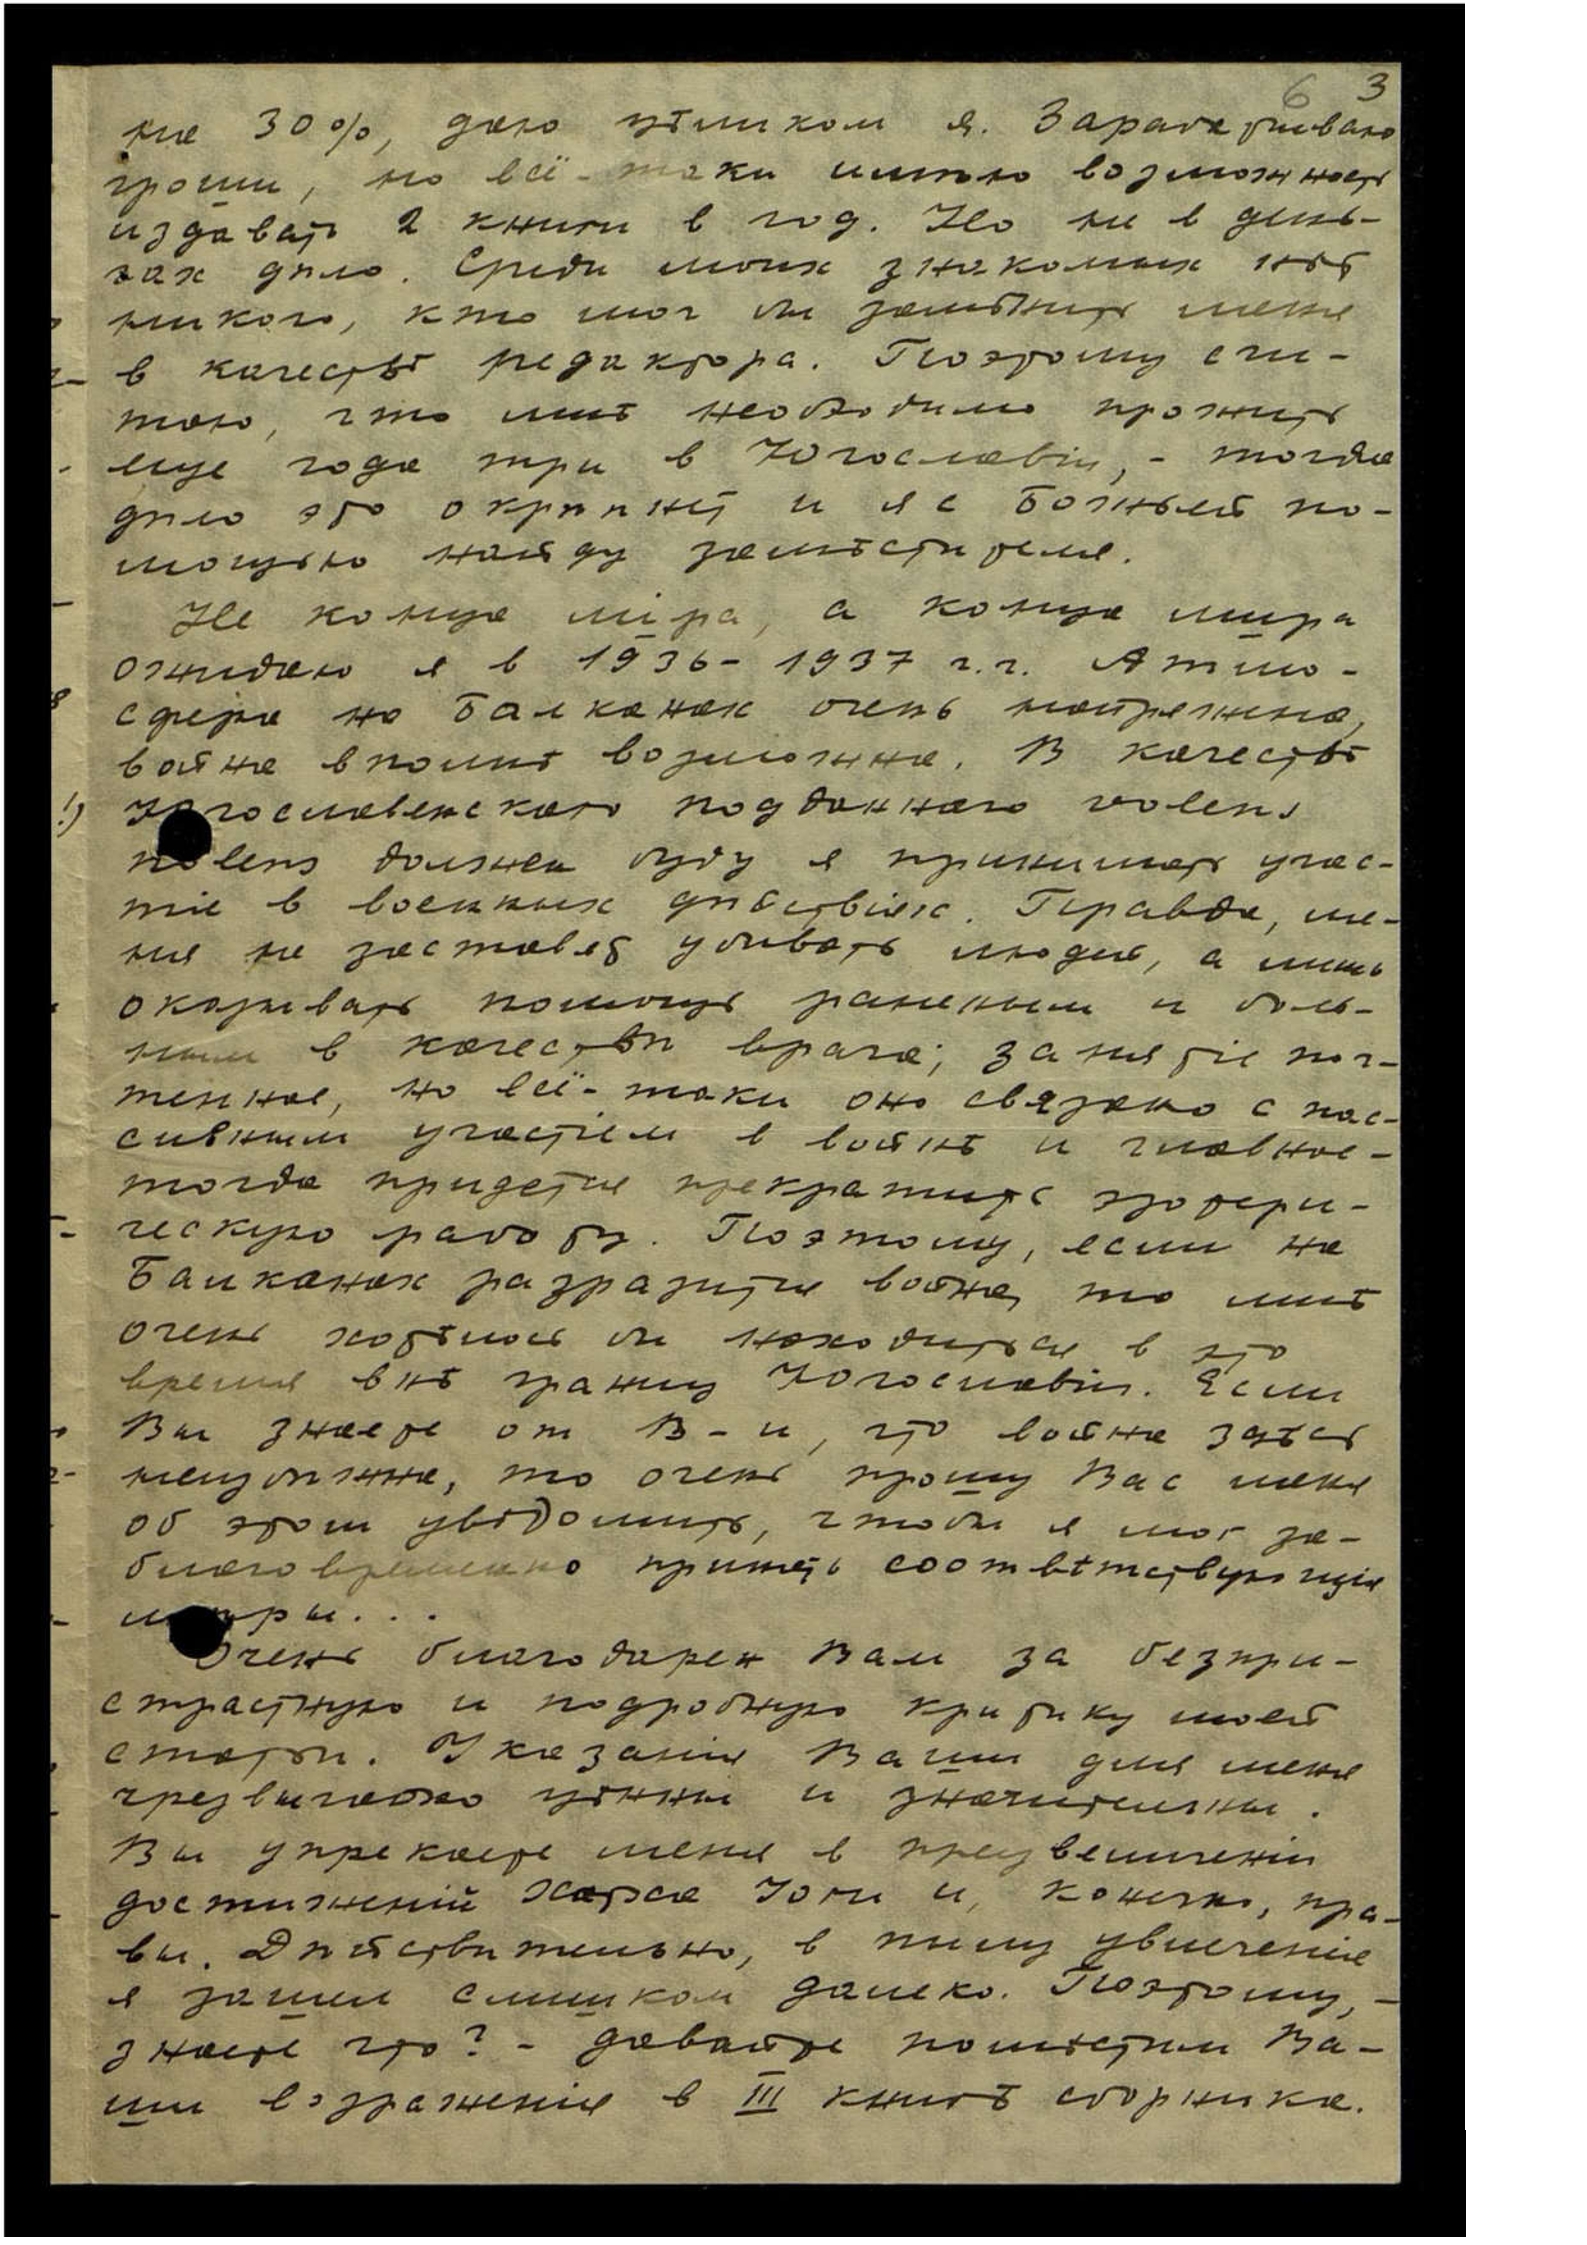 6 3
на 30%, даю цѣликом я. Зарабатываю
гроши, но всё-таки имѣю возможность
издавать 2 книги в год. Но не в день-
гах дѣло. Среди моих знакомых нѣт
никого, кто мог бы замѣнить меня
в качествѣ редактора. Поэтому счи-
таю, что мнѣ необходимо прожить
еще года три в Югославіи, - тогда
дѣло это окрѣпнет и я с Божьей по-
мощью найду замѣстителя.
Не конца міра, а конца мира
ожидаю я в 1936-1937 г.г. Атмо-
сфера на Балканах очень напряжена,
война вполнѣ возможна. В качествѣ
Югославенскаго подданнаго volens
nolens должен буду я принимать учас-
тіе в военных дѣйствіях. Правда, ме-
ня не заставят убивать людей, а лишь
оказывать помощь раненым и боль-
ным в качествѣ врача; занятіе поч-
тенное, но всё-таки оно связано с пас-
сивным участіем в войнѣ и главное -
тогда придется прекратить эзотери-
ческую работу. Поэтому, если на
Балканах разразится война, то мнѣ
очень хотѣлось бы находиться в это
время внѣ границ Югославіи. Если
Вы знаете от В-и, что война здѣсь
неизбѣжна, то очень прошу Вас меня
об этом увѣдомить, чтобы я мог за-
благовременно принять соотвѣтствующія
мѣры...
Очень благодарен Вам за безпри-
страстную и подробную критику моей
статьи. Указанія Ваши для меня
чрезвычайно цѣнны и значительны.
Вы упрекаете меня в преувеличеніи
достиженій Хатха Йоги и, конечно, пра-
вы. Дѣйствительно, в пылу увлеченія
я зашел слишком далеко. Поэтому, -
знаете что? - давайте помѣстим Ва-
ши возраженія в III книгѣ сборника.